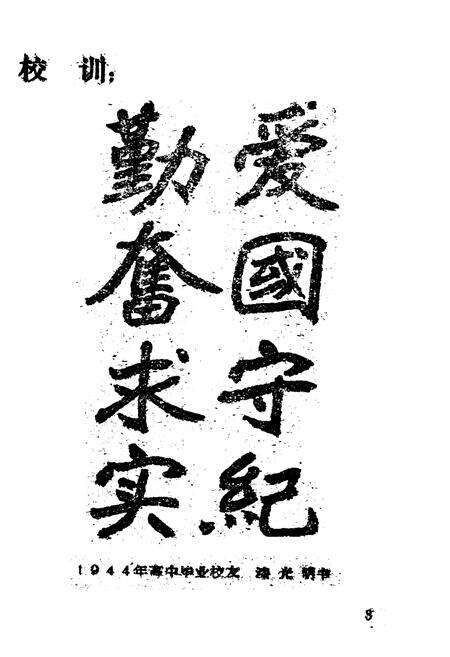 校 训：
爱國守紀
勤奋求实
1944年高中毕业校友 光明书
3